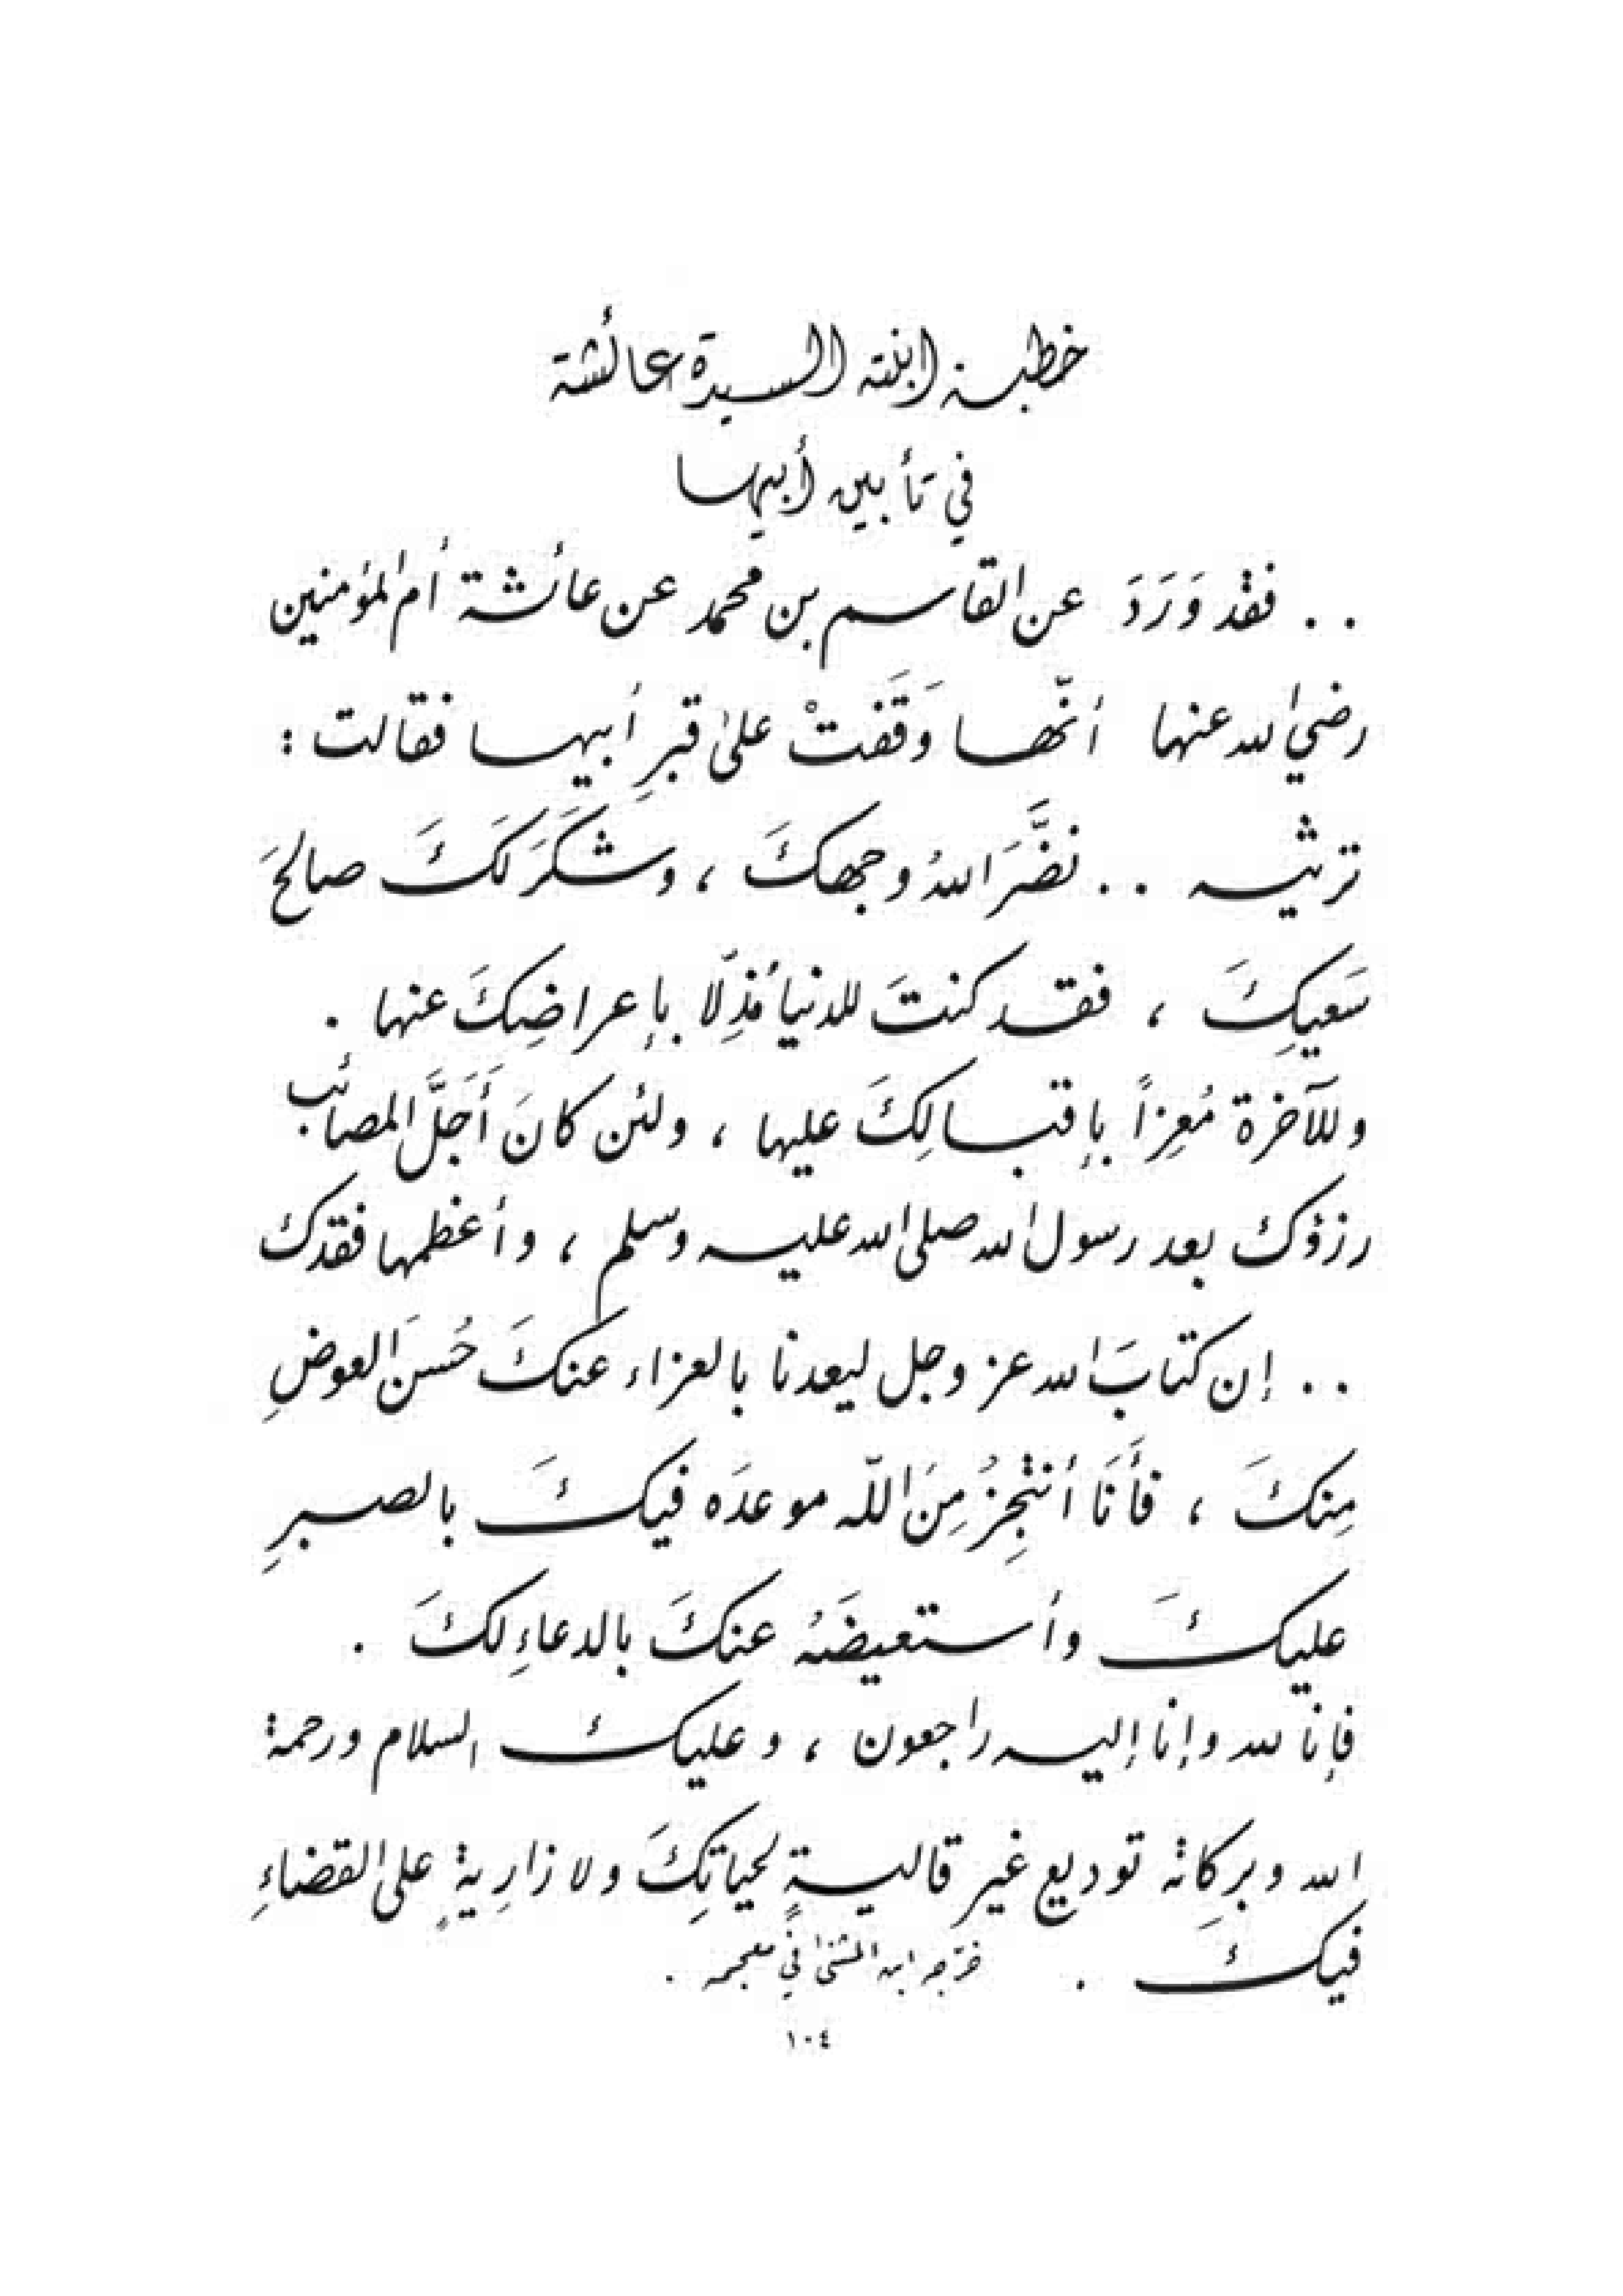 خطبة ابنته السيدة عائشة
في تأبين أبيها
. . فقد وَرَدَ عن القاسم بن محمد عن عائشة أم المؤمنين
رضي الله عنها أنّها وَقَفَتْ على قبرِ أبيها فقالت :
ترثيه . . نضَّرَ اللهُ وجهكَ ، وشكَرَ لكَ صالحَ
سَعيِكَ ، فقد كنتَ للدنيا مُذِلّا بإعراضِكَ عنها .
وللآخرة مُعِزاً بإقبالِكَ عليها ، ولئن كانَ أَجَلَّ المصائب
رزؤك بعد رسول الله صلى الله عليه وسلم ، وأعظمها فقدك
. . إن كتابَ الله عز وجل ليعدنا بالعزاء عنكَ حُسنَ العوضِ
مِنكَ ، فأَنَا أنتْجِزُ مِنَ اللّه موعدَه فيكَ بالصبرِ
عليكَ وأستعيضَهُ عنكَ بالدعاءِ لكَ .
فإنا لله وإنا إليه راجعون ، وعليك السلام ورحمة
الله وبركاتة توديع غير قاليةٍ لحياتِكَ ولا زارِيةٍ على القضاءِ
فيك . خرّجه ابن المثنى في معجمه .
١٠٤